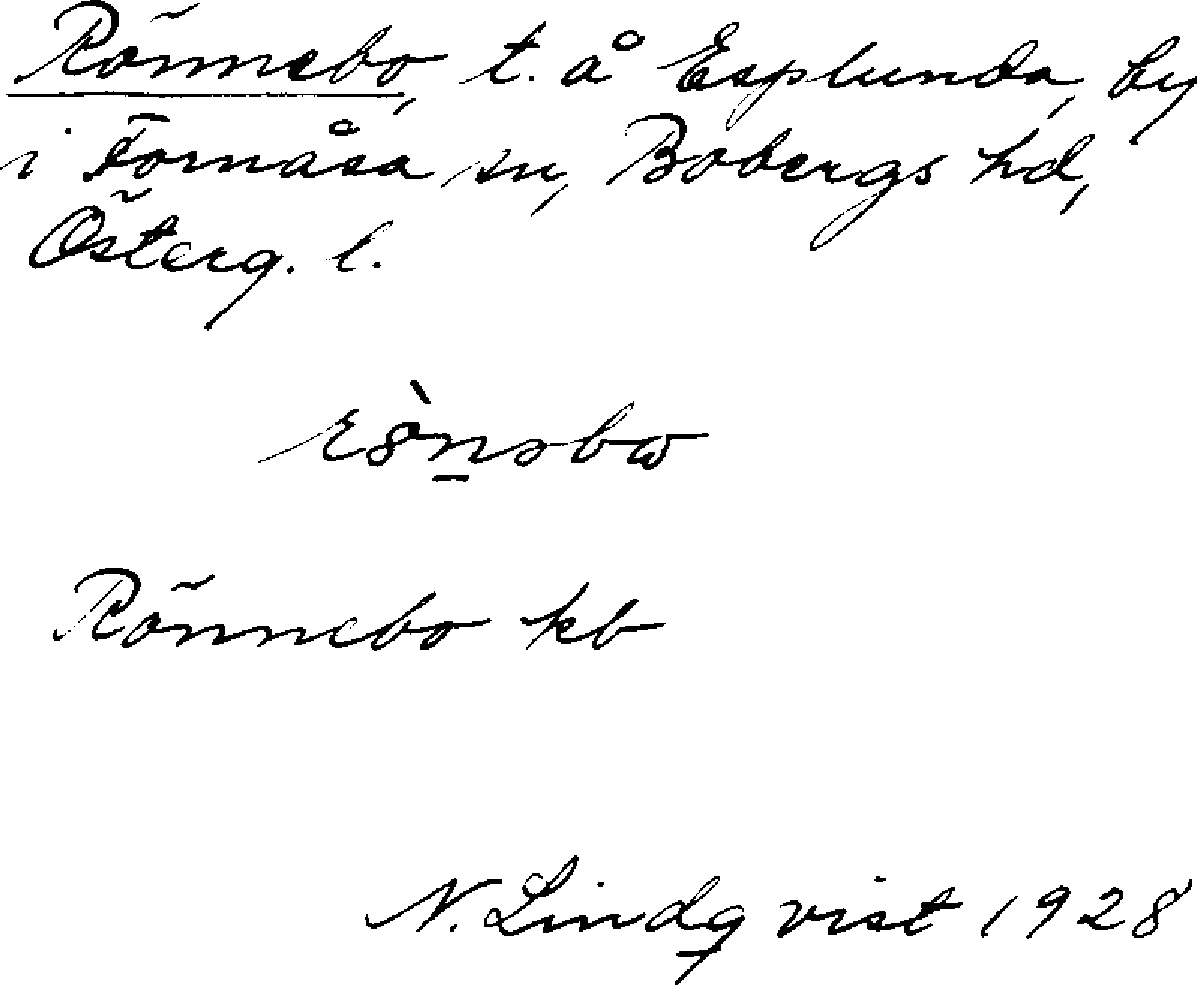 Rönnebo, t. å Esplunda, by
i Fornåsa sn, Bobergs hd,
Österg. l.
Rönnebo kb
N. Lindqvist 1928